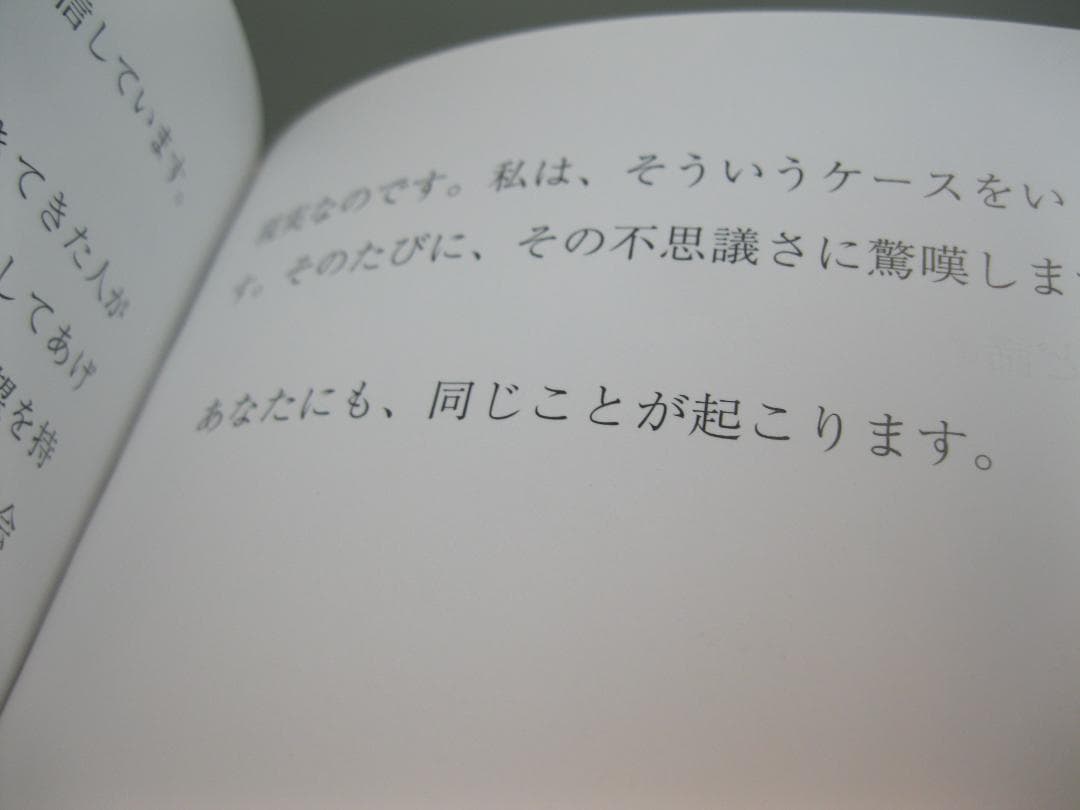 信しています。
てきた人が
してあげ
望を持
会
現実なのです。私は、そういうケースをい
す。そのたびに、その不思議さに驚嘆しま
あなたにも、同じことが起こります。